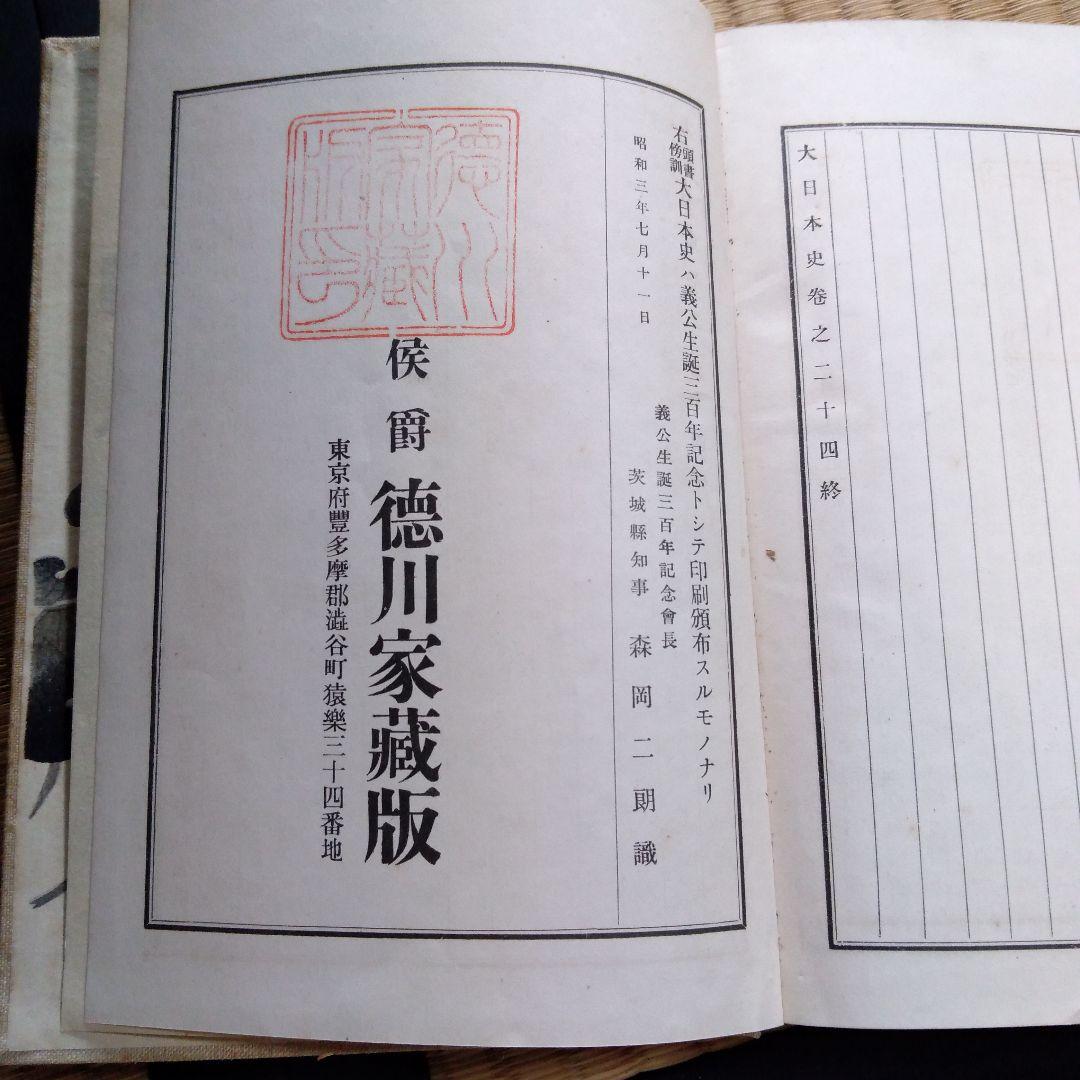 大日本史卷之二十四終
右頭書傍訓大日本史ハ義公生誕三百年記念トシテ印刷頒布スルモノナリ
昭和三年七月十一日
義公生誕三百年記念會長
茨城縣知事 森岡二朗識
德川家藏版印
侯爵 德川家藏版
東京府豐多摩郡澁谷町猿樂三十四番地